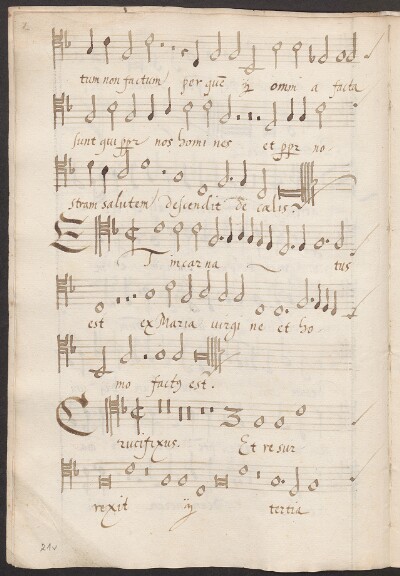 tum non factum per quē oīa facta
sunt qui ppr nos homi nes et ppr no-
stram salutem descendit de cælis.
ET incarna tus
est ex Maria virgi ne et ho-
mo factꝰ est.
Crucifixus. Et resur
rexit ij tertia
21v